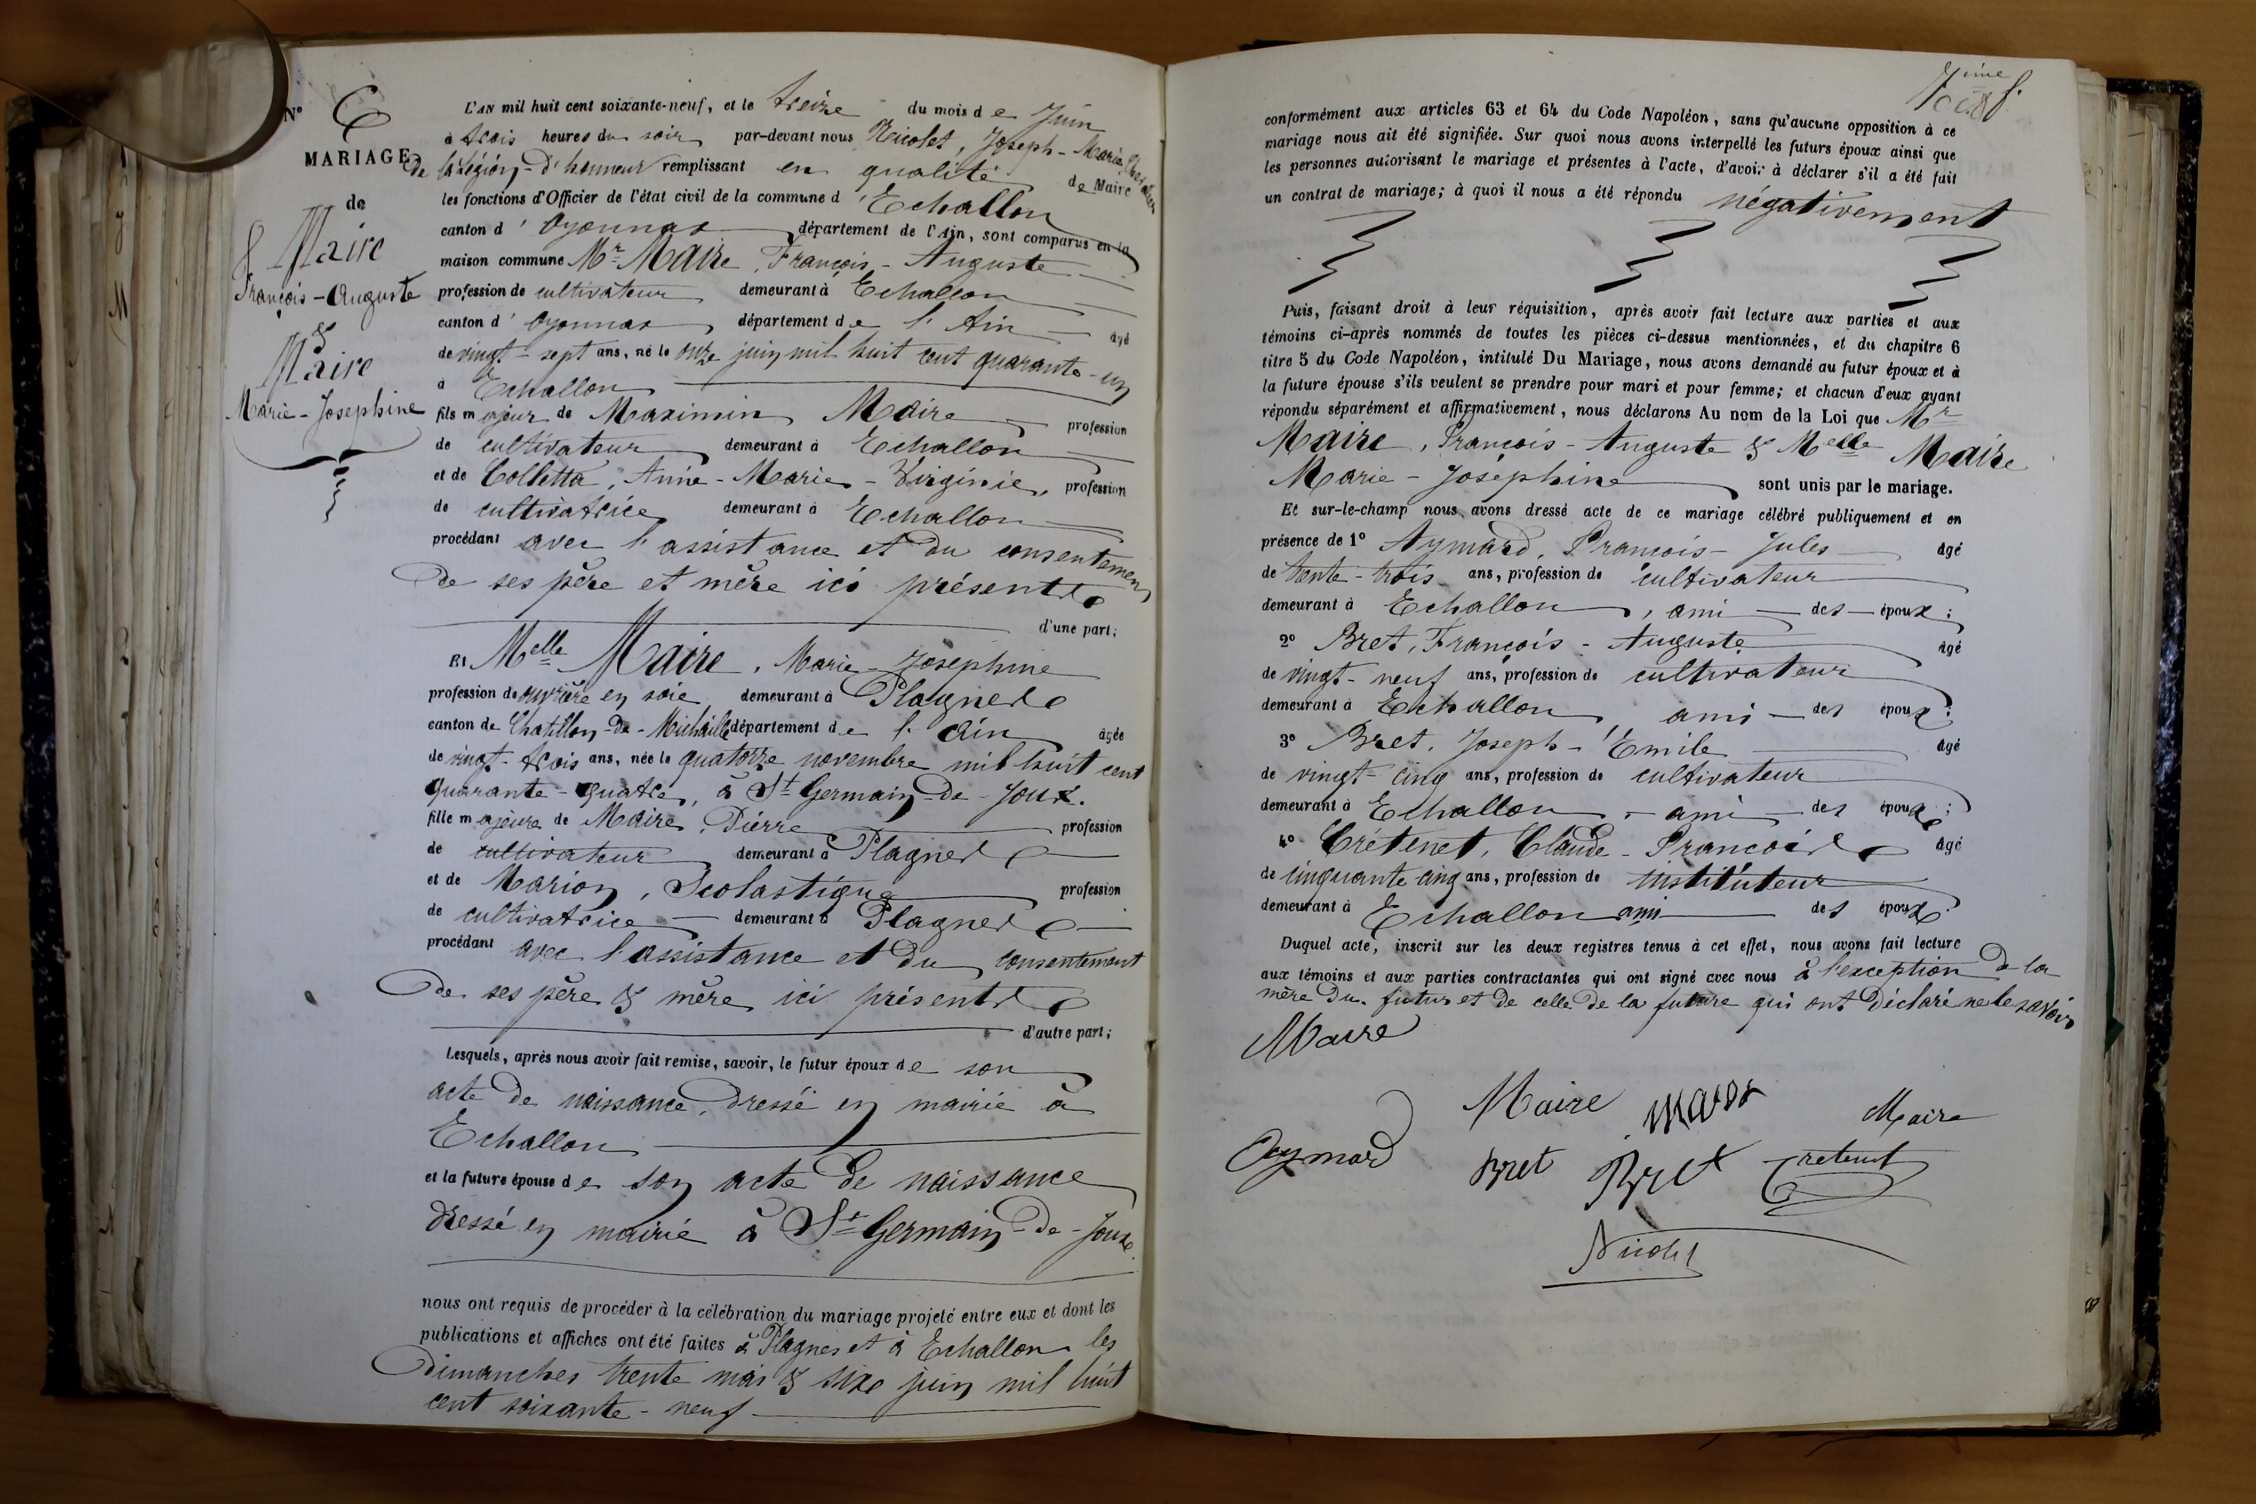 N° 6
MARIAGE
de
Maire
François-Auguste
&
Maire
Marie-Josephine
L'AN mil huit cent soixante-neuf, et le treize du mois de Juin
à trois heures du soir par-devant nous Nicolet, Joseph-Marie Chevalier
de la légion-d'honneur remplissant en qualité de Maire
les fonctions d'Officier de l'état civil de la commune d'Echallon
canton d'Oyonnax département de l'Ain, sont comparus en la
maison commune Mr Maire, François-Auguste
profession de cultivateur demeurant à Echallon
canton d'Oyonnax, département de l'Ain âgé
de vingt-sept ans, né le onze juin mil huit cent quarante-un
à Echallon
fils majeur de Maximin Maire profession
de cultivateur demeurant à Echallon
et de Colletta, Anne-Marie-Virginie, profession
de cultivatrice demeurant à Echallon
procédant avec l'assistance et du consentement
de ses père et mère ici présents
d'une part;
Et Melle Maire, Marie-Josephine
profession de ouvrière en soie demeurant à Plagnes
canton de Chatillon-de-Michaille département de l'Ain âgée
de vingt-trois ans, née le quatorze novembre mil huit cent
quarante-quatre, à St Germain-de-Joux.
fille majeure de Maire, Pierre profession
de cultivateur demeurant à Plagnes
et de Marion, Scolastique profession
de cultivatrice demeurant à Plagnes
procédant avec l'assistance et du consentement
de ses père & mère ici présents
d'autre part;
Lesquels, après nous avoir fait remise, savoir, le futur époux de son
acte de naissance, dressé en mairie à
Echallon
et la future épouse de son acte de naissance
dressé en mairie à St Germain-de-Joux.
nous ont requis de procéder à la célébration du mariage projeté entre eux et dont les
publications et affiches ont été faites à Plagnes et à Echallon les
dimanches trente mai & six juin mil huit
cent soixante-neuf
7ème f.
conformément aux articles 63 et 64 du Code Napoléon, sans qu'aucune opposition à ce
mariage nous ait été signifiée. Sur quoi nous avons interpellé les futurs époux ainsi que
les personnes autorisant le mariage et présentes à l'acte, d'avoir à déclarer s'il a été fait
un contrat de mariage; à quoi il nous a été répondu négativement
Puis, faisant droit à leur réquisition, après avoir fait lecture aux parties et aux
témoins ci-après nommés de toutes les pièces ci-dessus mentionnées, et du chapitre 6
titre 5 du Code Napoléon, intitulé Du Mariage, nous avons demandé au futur époux et à
la future épouse s'ils veulent se prendre pour mari et pour femme; et chacun d'eux ayant
répondu séparément et affirmativement, nous déclarons Au nom de la Loi que Mr
Maire, François-Auguste & Melle Maire
Marie-Joséphine sont unis par le mariage.
Et sur-le-champ nous avons dressé acte de ce mariage célébré publiquement et en
présence de 1° Aymard, François-Jules âgé
de trente-trois ans, profession de cultivateur
demeurant à Echallon, ami des époux;
2° Bret, François-Auguste âgé
de vingt-neuf ans, profession de cultivateur
demeurant à Echallon, ami des époux;
3° Bret, Joseph-Emile âgé
de vingt-cinq ans, profession de cultivateur
demeurant à Echallon, ami des époux;
4° Crétenet, Claude-François âgé
de cinquante-cinq ans, profession de instituteur
demeurant à Echallon ami des époux.
Duquel acte, inscrit sur les deux registres tenus à cet effet, nous avons fait lecture
aux témoins et aux parties contractantes qui ont signé avec nous à l'exception de la
mère du futur et de celle de la future qui ont déclaré ne le savoir
Maire
Maire Maire Maire
Aymard Bret Bret Cretenet
Nicolet